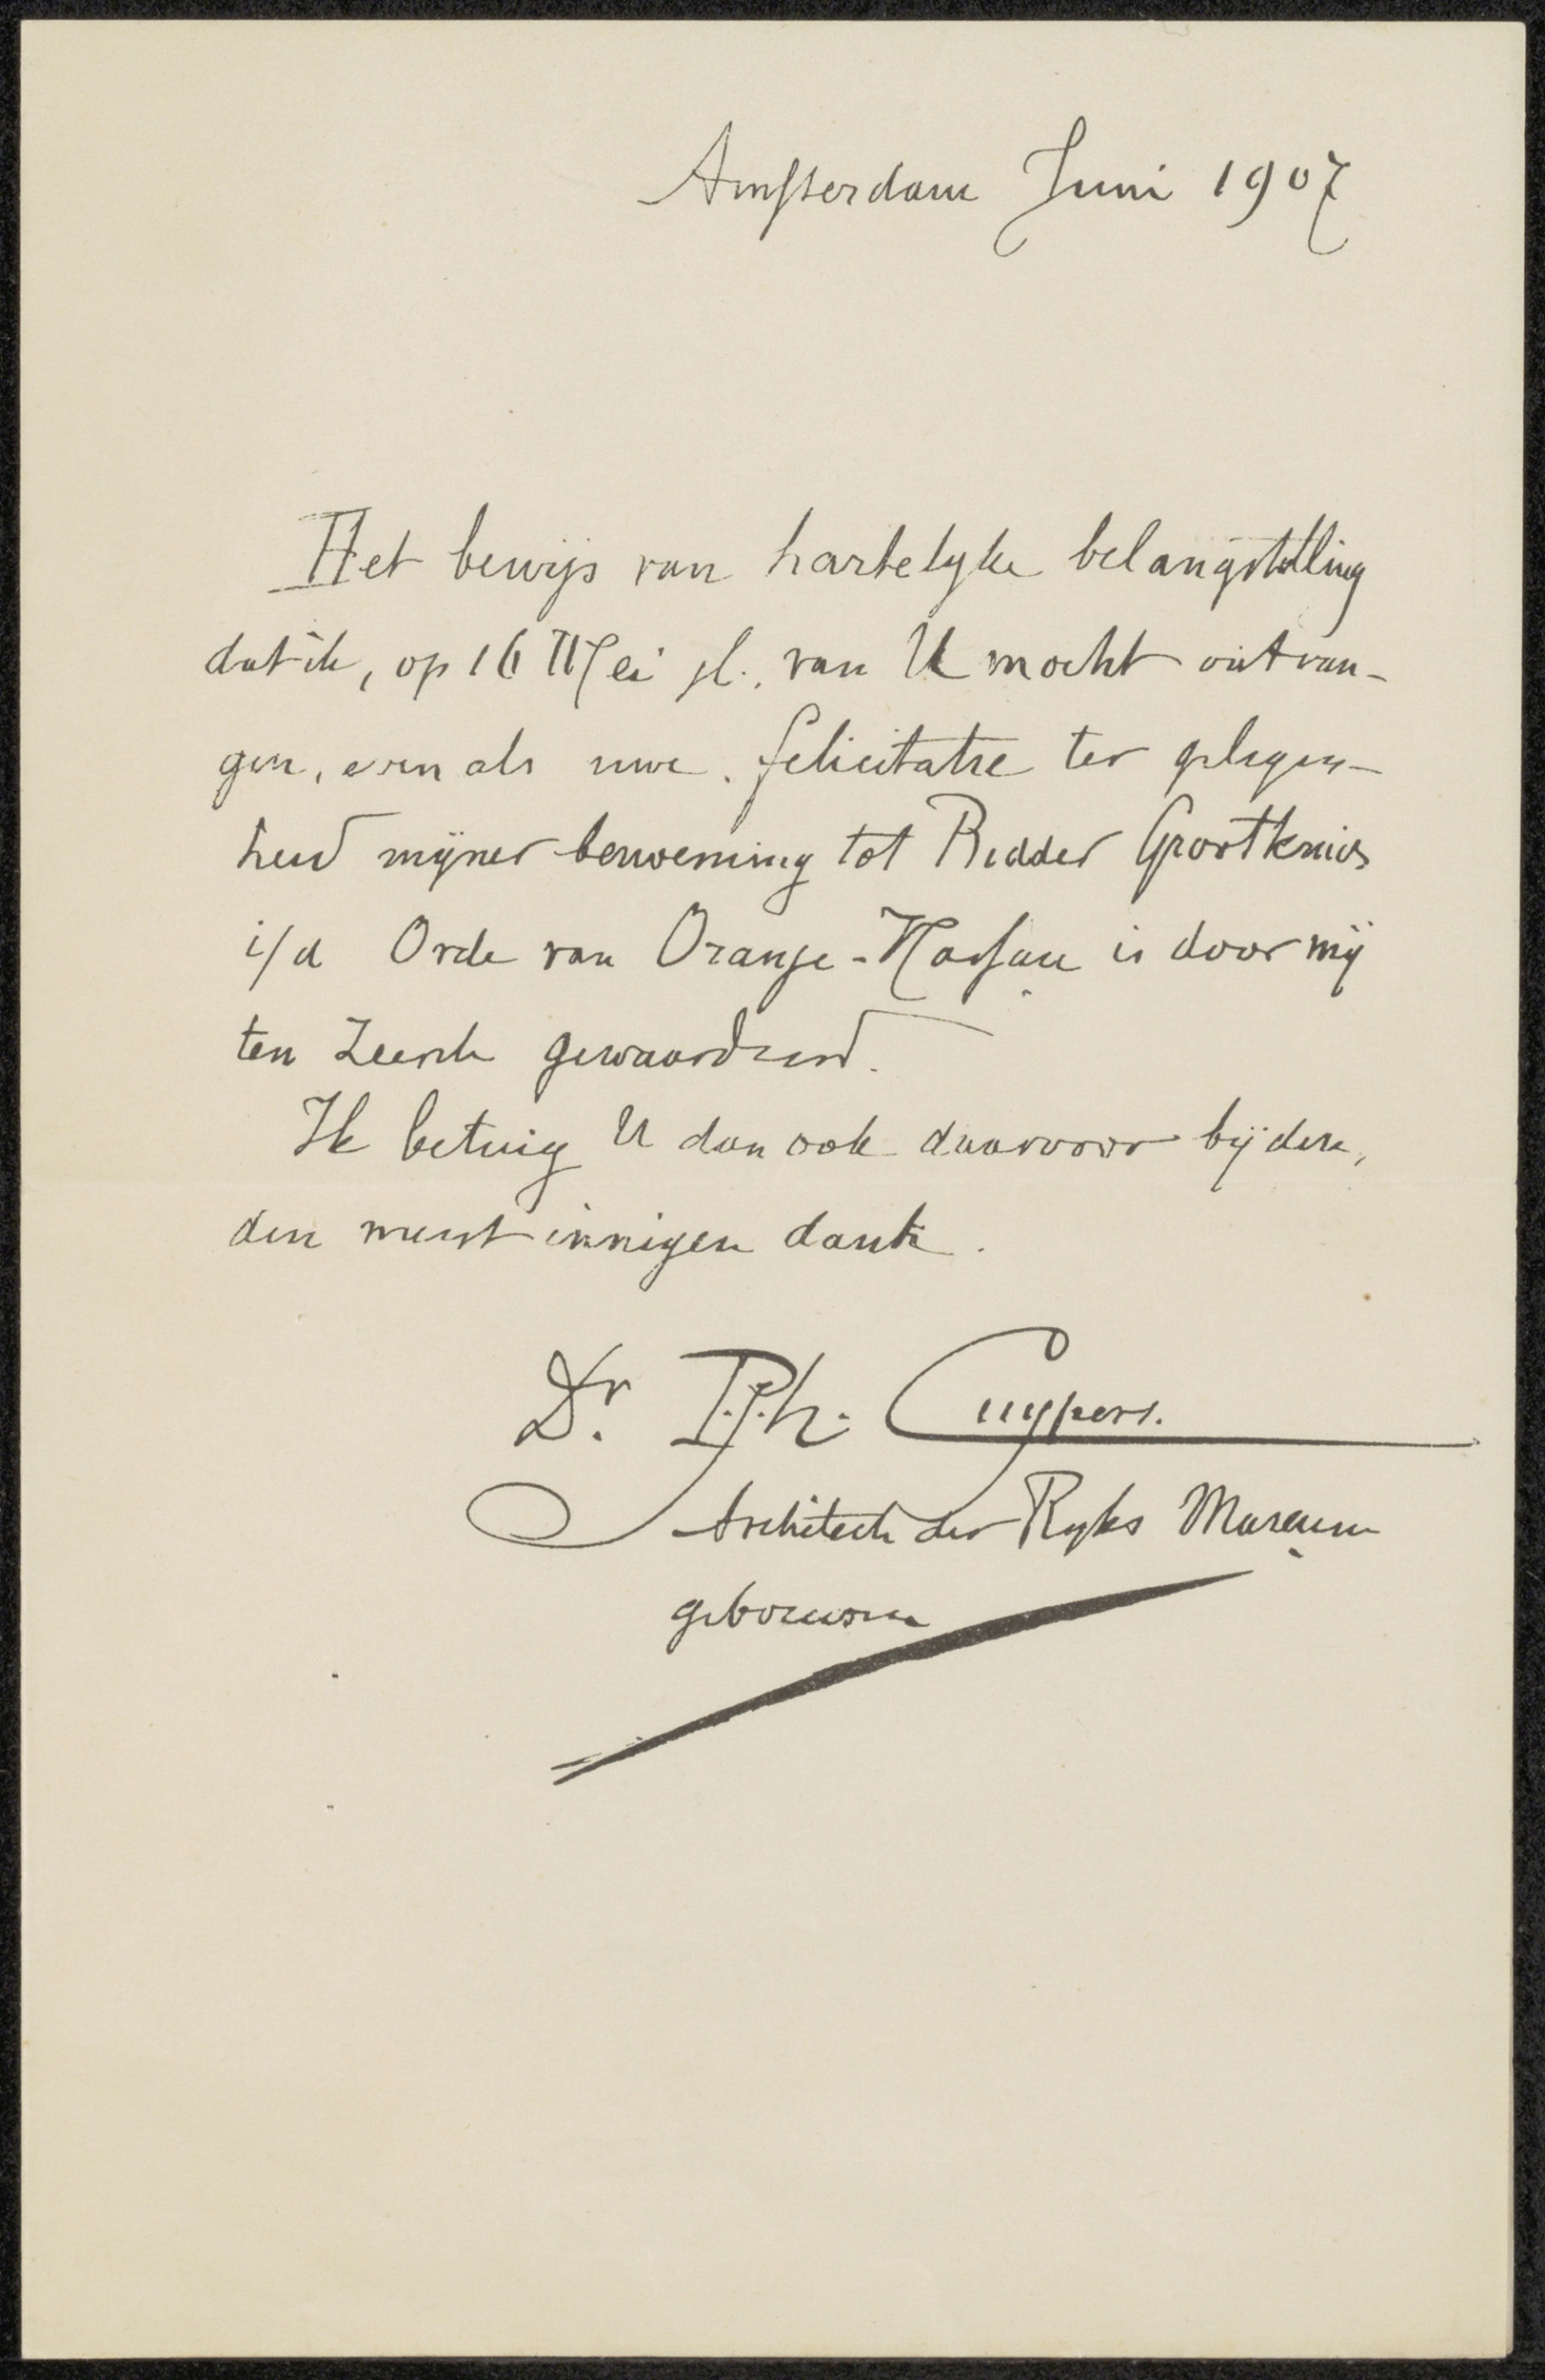 Amsterdam Juni 1907
Het bewijs van hartelyke belangstelling
dat ik, op 16 Mei jl., van U mocht ontvan-
gen, evenals uwe felicitatie ter gelegen-
heid mijner benoeming tot Ridder Grootkruis
i/d Orde van Oranje-Nassau is door mij
ten zeerste gewaardeerd.
Ik betuig U dan ook daarvoor bij deze,
den meest innigen dank.
Dr. P.J.h. Cuypers.
Architect der Ryks Museum
gebouwen